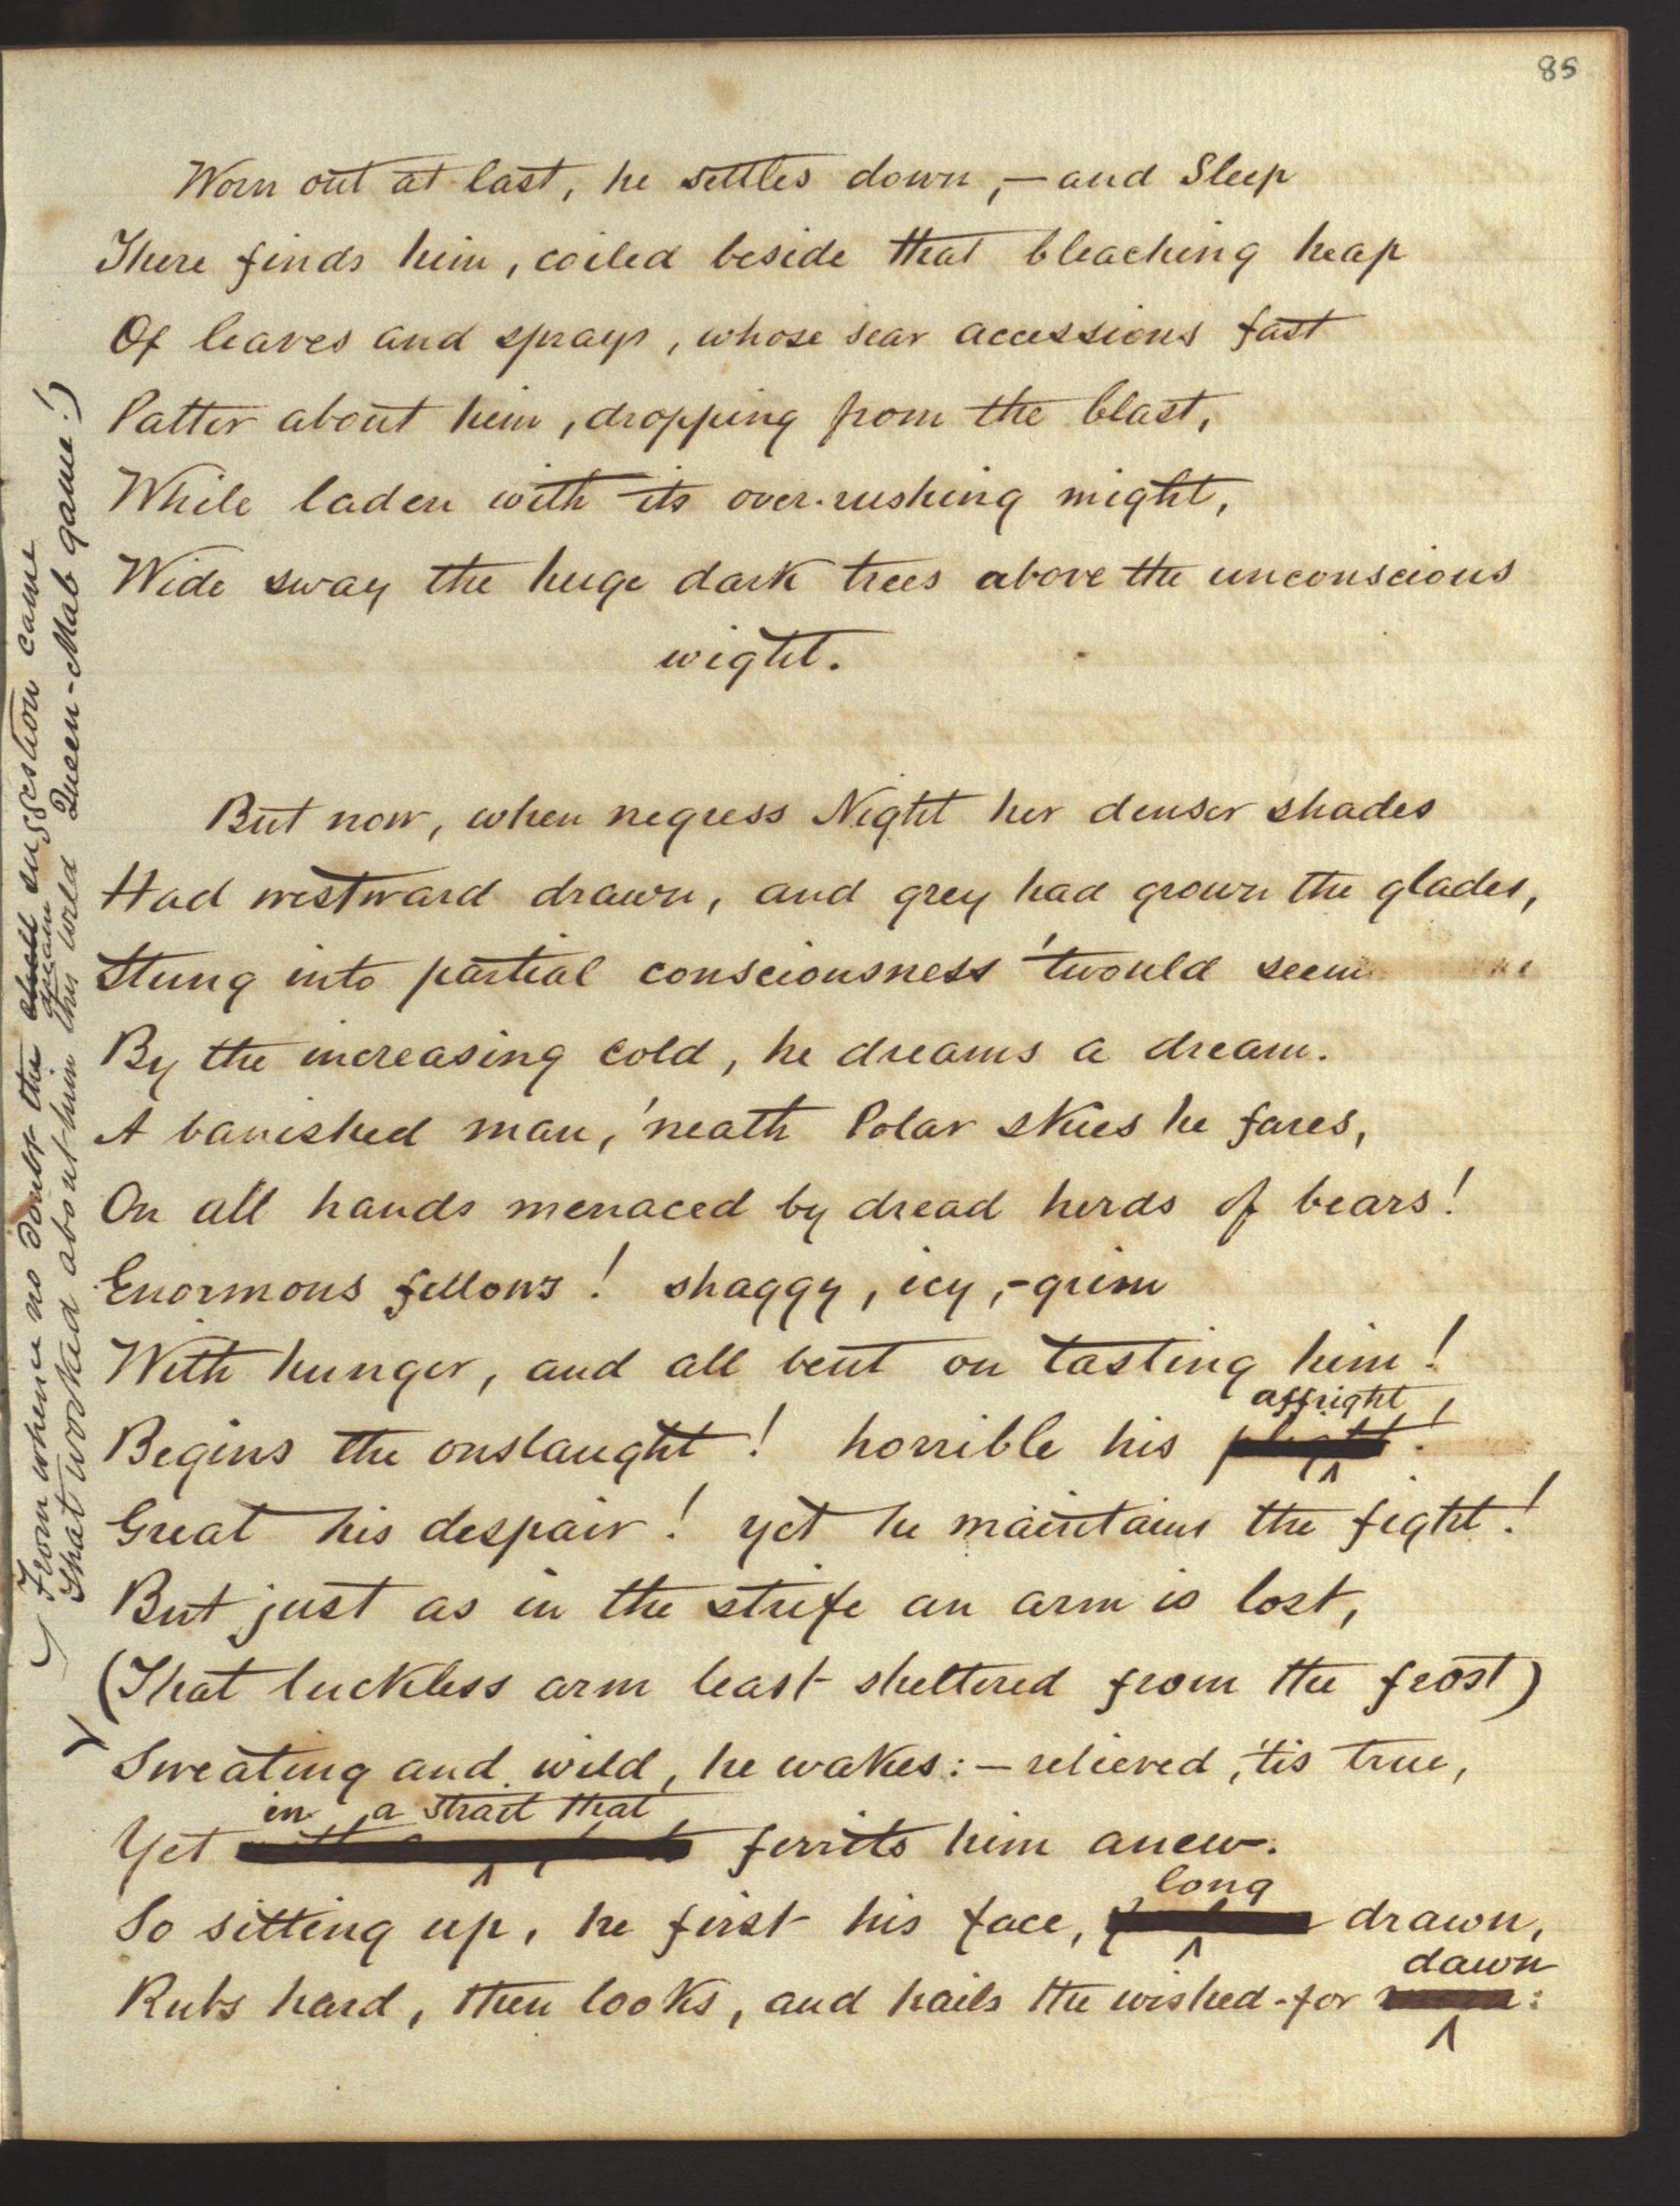 85
Worn out at last, he settles down,—and Sleep
There finds him, coiled beside that bleaching heap
Of leaves and sprays, whose sear accessions fast
Patter about him, dropping from the blast,
While laden with its over-rushing might,
Wide sway the huge dark trees above the unconscious
wight.
But now, when negress Night her denser shades
Had westward drawn, and grey had grown the glades,
Stung into partial consciousness 'twould seem
By the increasing cold, he dreams a dream.
A banished man, 'neath Polar skies he fares,
On all hands menaced by dread herds of bears!
Enormous fellows! shaggy, icy,-grim
With hunger, and all bent on tasting him!
affright!
Begins the onslaught! horrible his plight!
Great his despair! yet he maintains the fight!
But just as in the strife an arm is lost,
(That luckless arm least sheltered from the frost)
Sweating and wild, he wakes:—relieved, 'tis true,
in a strait that
Yet ferrits him anew.
long
So sitting up, he first his face, drawn,
dawn
Rubs hard, then looks, and hails the wished-for :
(From whence no doubt the suggestion came
dream
That worked about him this wild Queen-Mab game!)